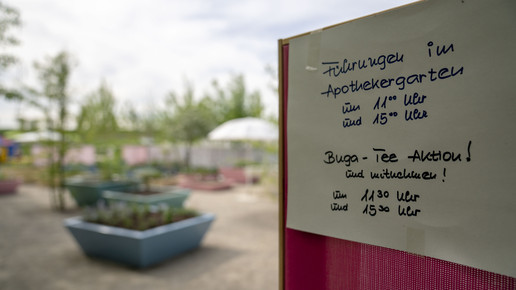 Führungen im
Apothekergarten
um 11⁰⁰ Uhr
und 15⁰⁰ Uhr
Buga-Tee-Aktion!
und mitnehmen!
um 11³⁰ Uhr
und 15³⁰ Uhr